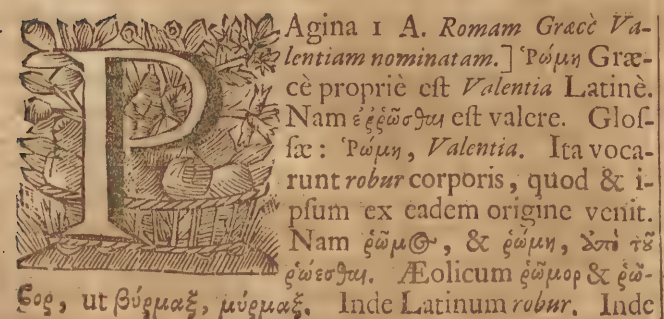 PAgina 1 A. Romam Græcè Va-
lentiam nominatam.] Ῥώμη Græ-
cè propriè eſt Valentia Latinè.
Nam ἐῤῥῶσθαι eſt valere. Gloſ-
ſæ: Ῥώμη, Valentia. Ita voca-
runt robur corporis, quod & i-
pſum ex eadem origine venit.
Nam ῥῶμος, & ῥώμη, ἀπὸ τοῦ
ῥώεσθαι. Æolicum ῥῶμορ & ῥῶ-
βορ, ut βύρμαξ, μύρμαξ. Inde Latinum robur. Inde